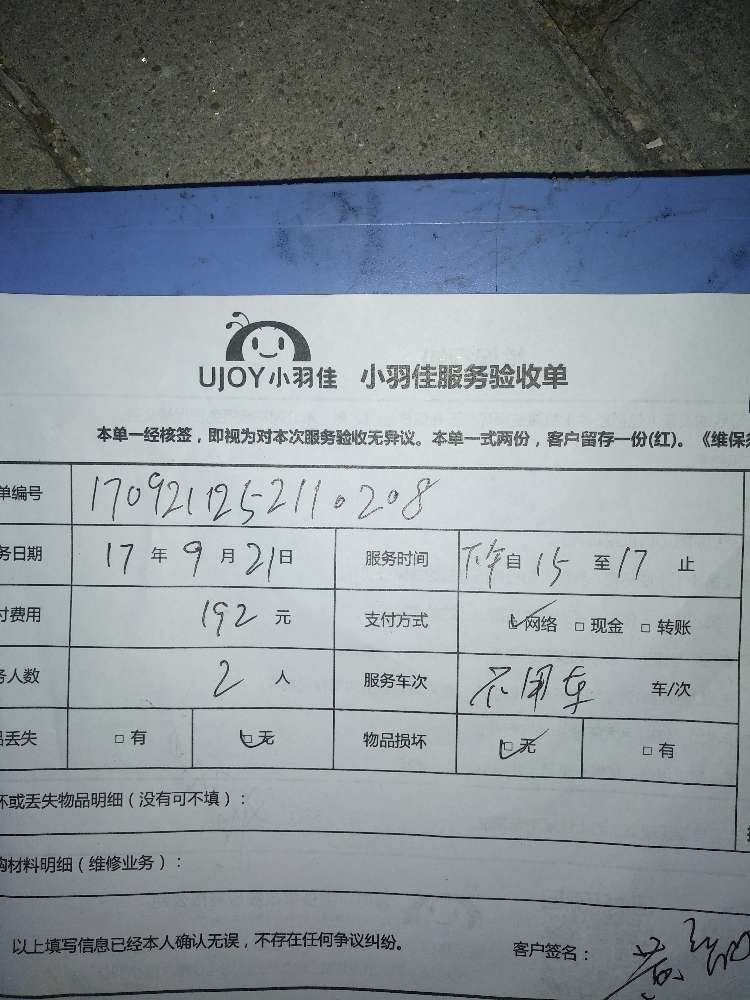 UJOY小羽佳 小羽佳服务验收单
本单一经核签，即视为对本次服务验收无异议。本单一式两份，客户留存一份(红)。《维保
单编号 1709211252110208
务日期 17 年 9 月 21 日 服务时间 下午 自 15 至 17 止
付费用 192 元 支付方式 ☑ 网络 □ 现金 □ 转账
务人数 2 人 服务车次 不用车 车/次
品丢失 □ 有 ☑ 无 物品损坏 ☑ 无 □ 有
坏或丢失物品明细（没有可不填）：
购材料明细（维修业务）：
以上填写信息已经本人确认无误，不存在任何争议纠纷。 客户签名：